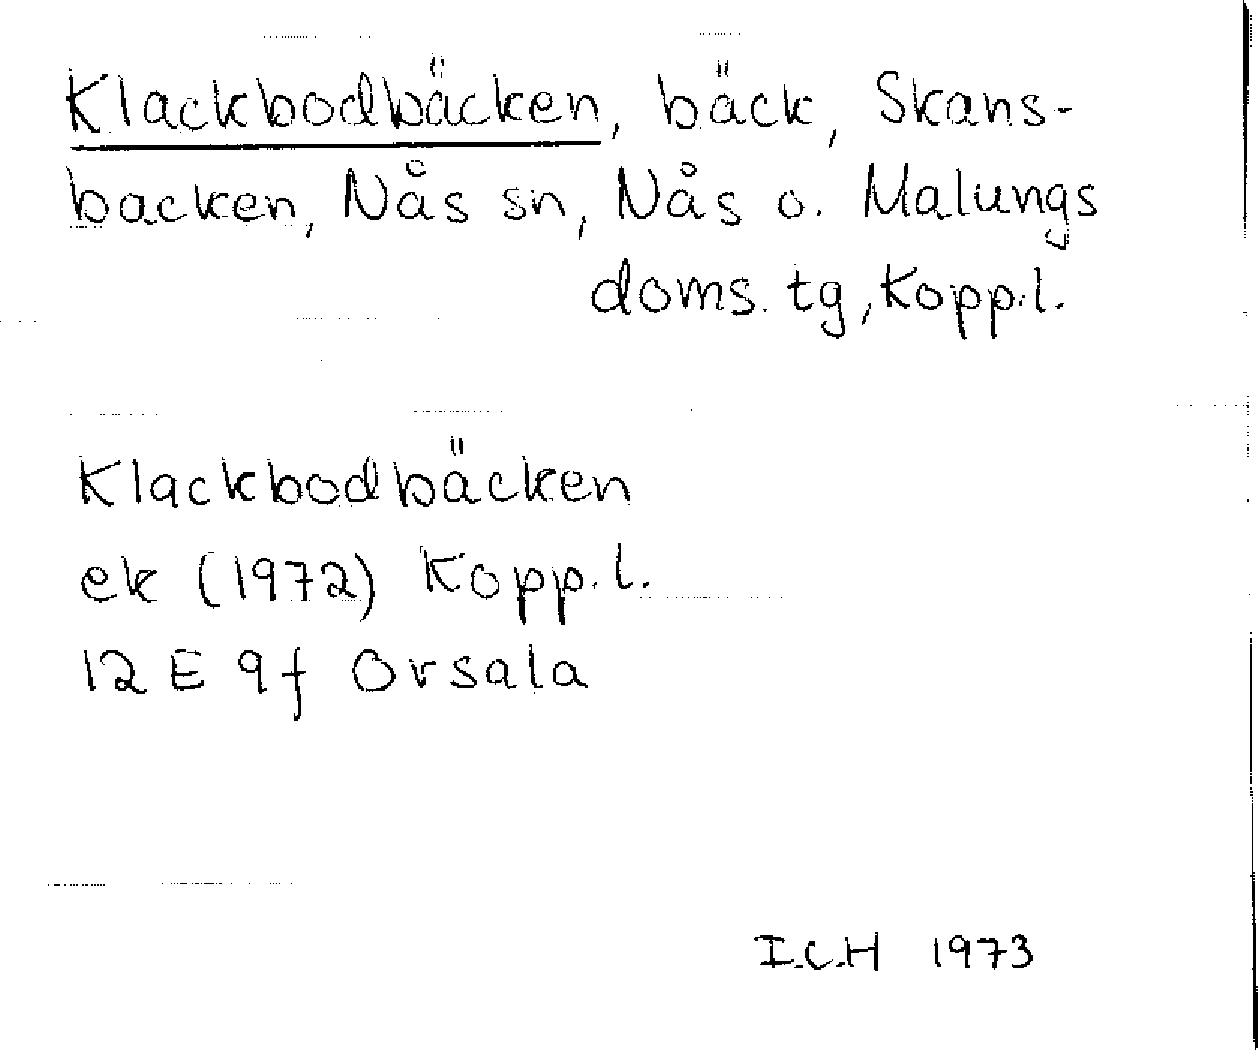 Klackbodbäcken, bäck, Skans-
backen, Nås sn, Nås o. Malungs
doms. tg, Kopp.l.
Klackbodbäcken
ek (1972) Kopp.l.
12 E 9f Orsala
I.C.H 1973